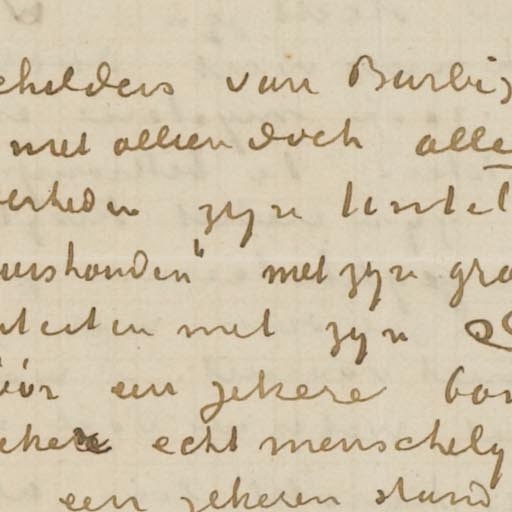 schilders van Barbiz
niet alleen doch alle
erheden zyn
uishouden" met zyn gra
met zyn
vóór een zekere bon
zekere echt menschely
een zekeren stand